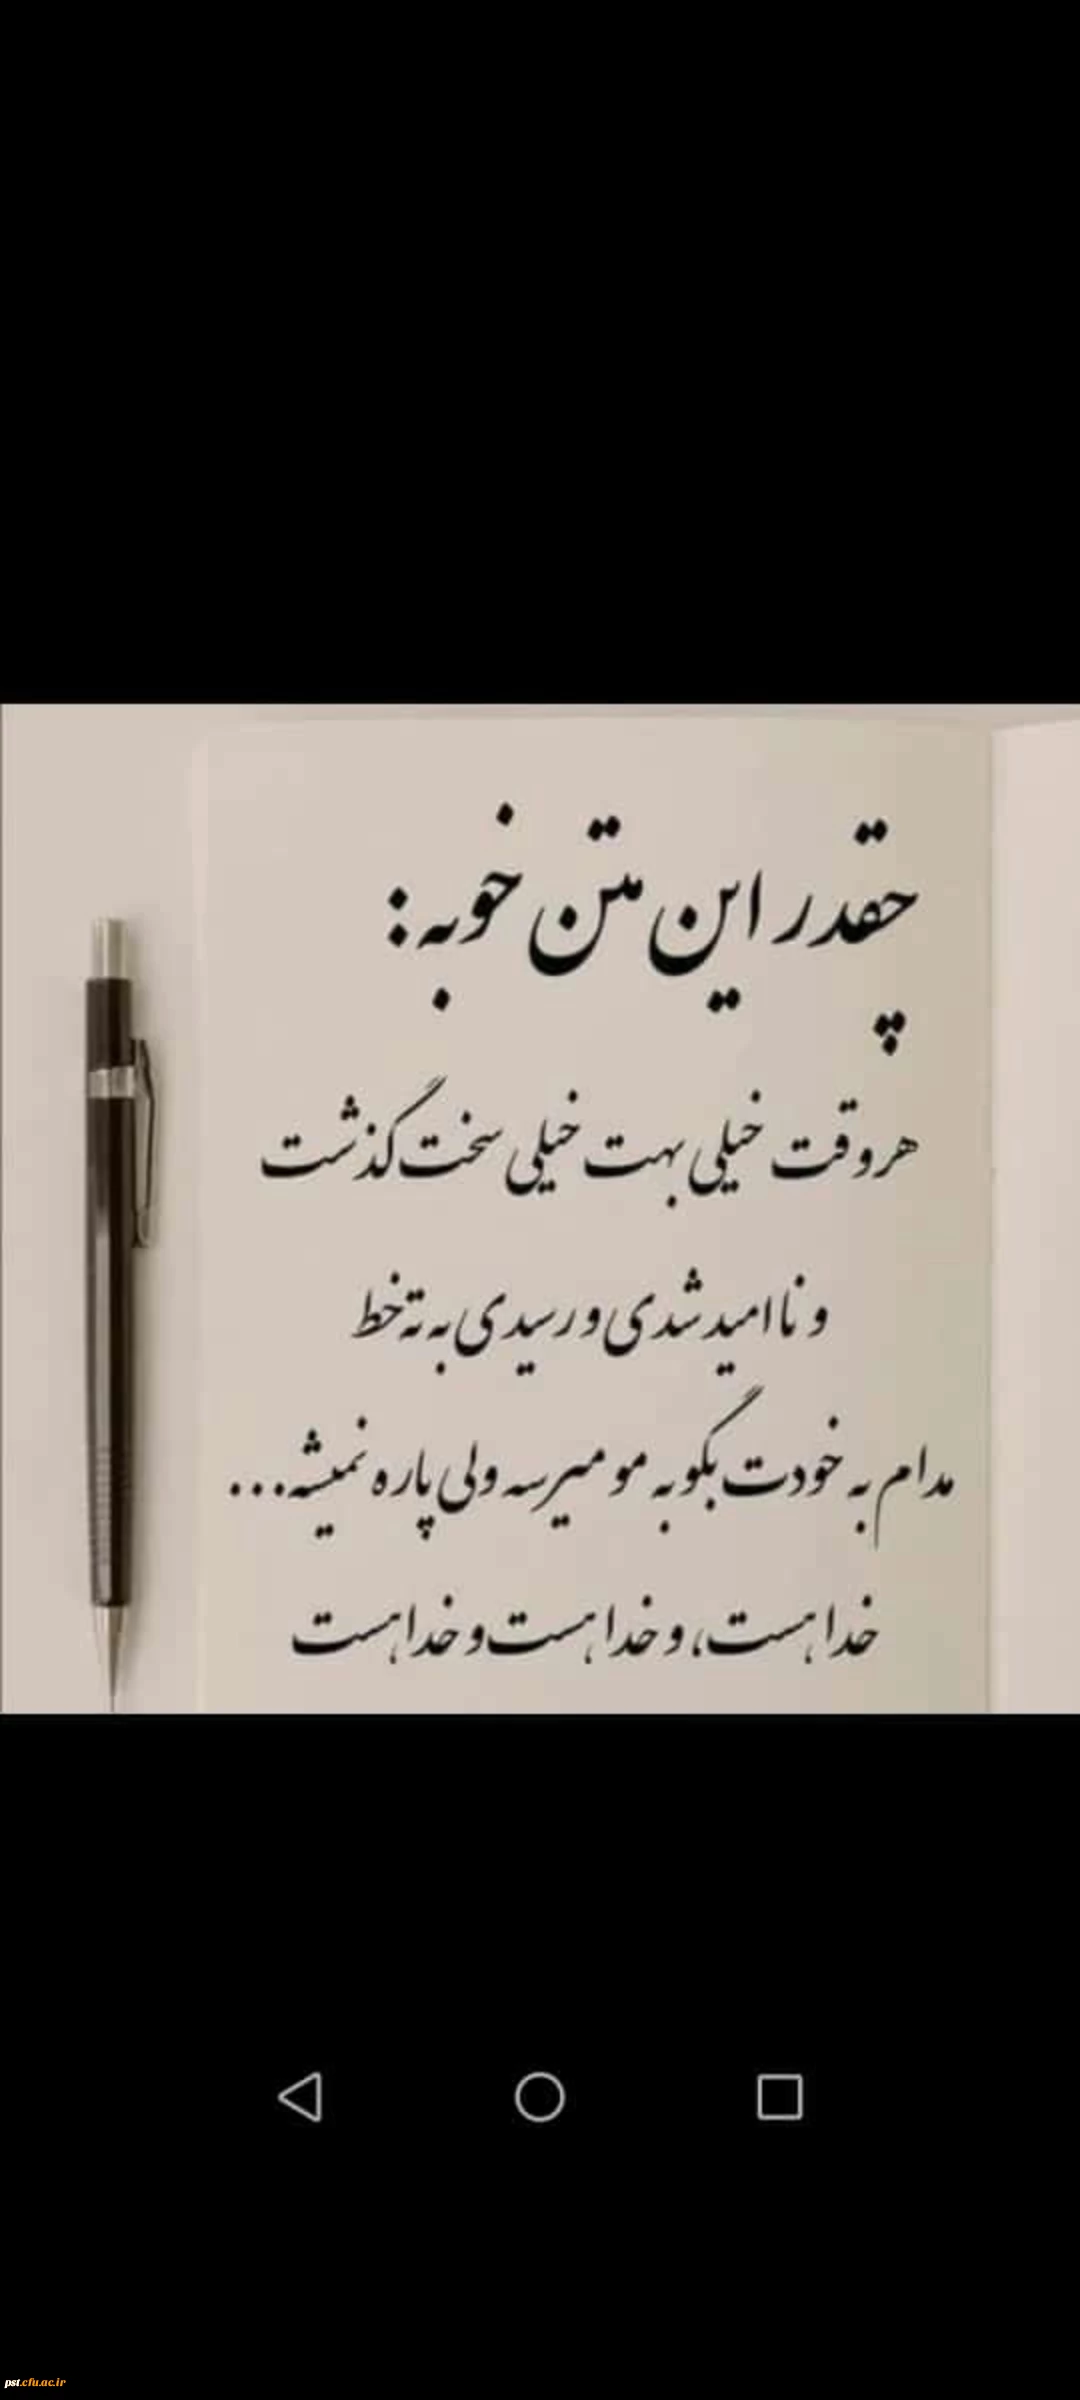 چقدر این متن خوبه:
هروقت خیلی بهت خیلی سخت گذشت
و ناامید شدی و رسیدی به ته خط
مدام به خودت بگو به مو میرسه ولی پاره نمیشه...
خدا هست، و خدا هست و خدا هست
pst.cfu.ac.ir